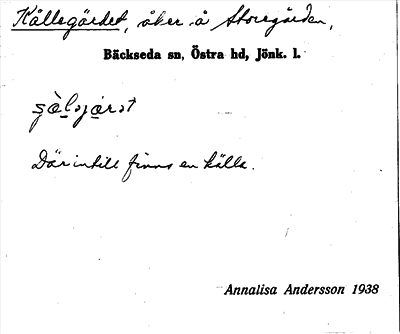 Källegärdet, åker å Storegården,
Bäckseda sn, Östra hd, Jönk. l.
Därintill finns en källa.
Annalisa Andersson 1938